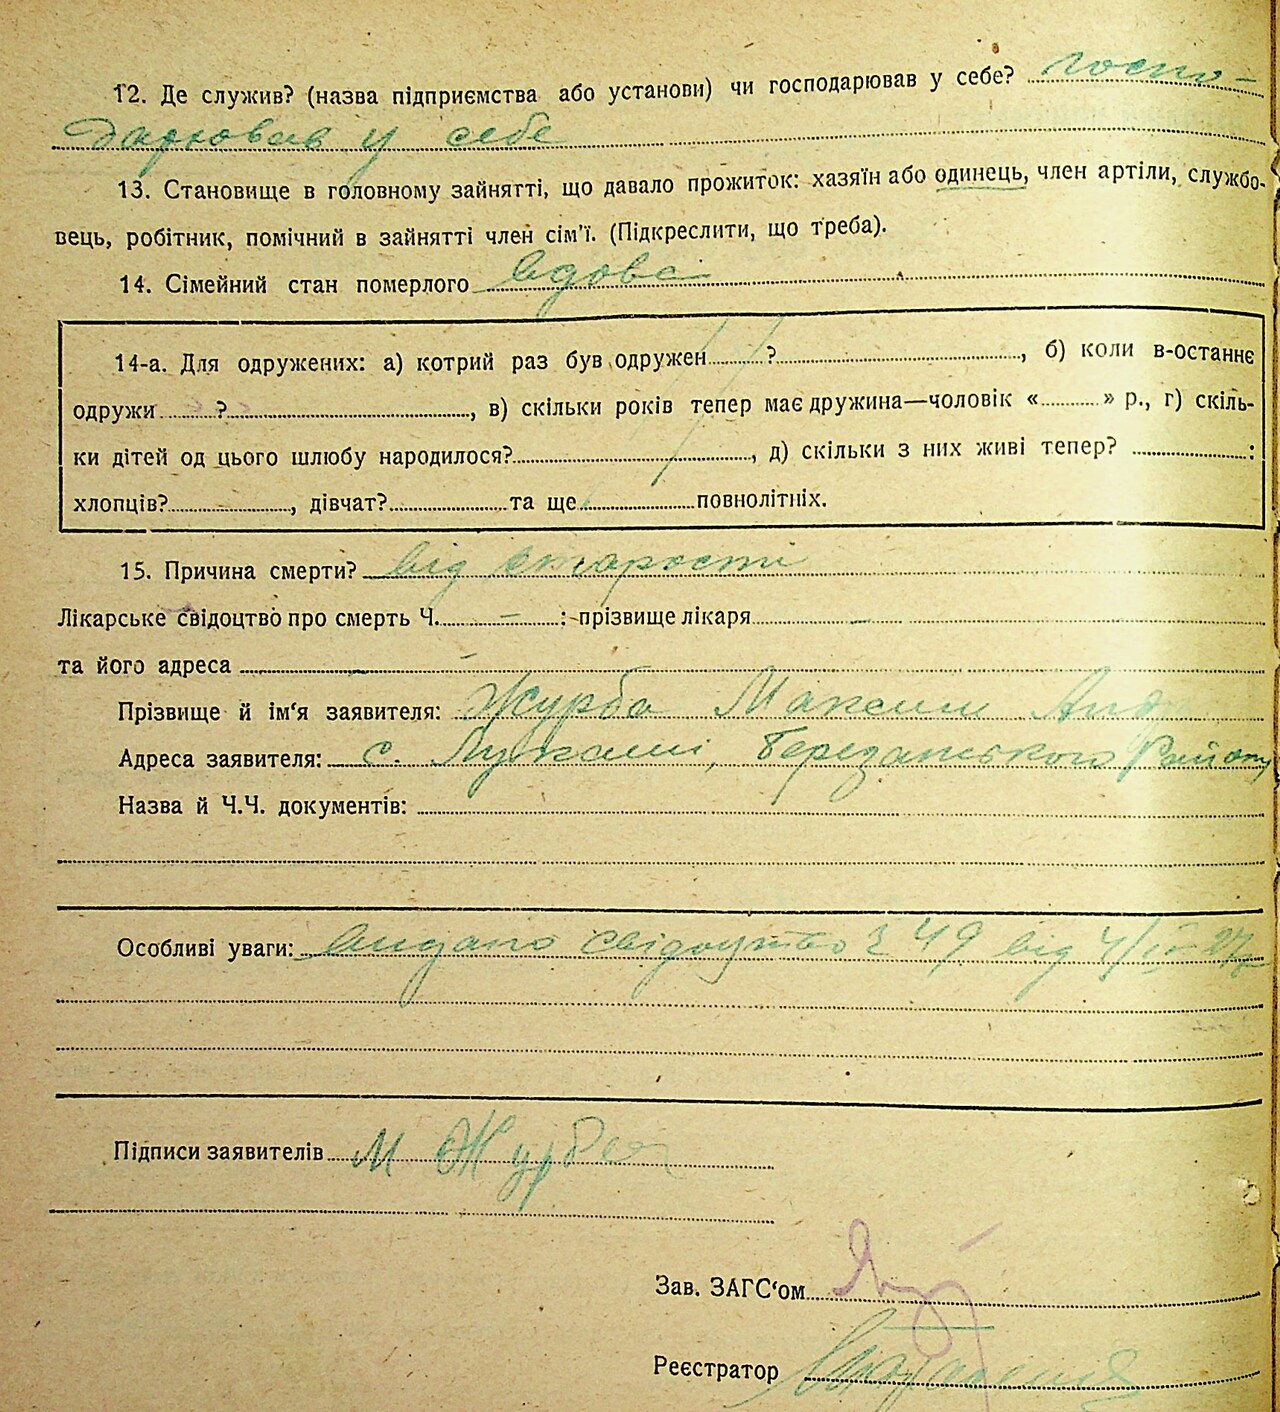 12. Де служив? (назва підприємства або установи) чи господарював у себе? госпо-
дарював у себе
13. Становище в головному зайнятті, що давало прожиток: хазяїн або одинець, член артіли, службо-
вець, робітник, помічний в зайнятті член сім'ї. (Підкреслити, що треба).
14. Сімейний стан померлого вдова
14-а. Для одружених: а) котрий раз був одружен ? , б) коли в-останнє
одружи ? , в) скільки років тепер має дружина—чоловік « » р., г) скіль-
ки дітей од цього шлюбу народилося? , д) скільки з них живі тепер? :
хлопців? , дівчат? та ще повнолітніх.
15. Причина смерти? від старости
Лікарське свідоцтво про смерть Ч. – : прізвище лікаря –
та його адреса –
Прізвище й ім'я заявителя: Журба Максим Анд
Адреса заявителя: с. Лукаші, Березанського Району
Назва й Ч.Ч. документів:
Особливі уваги: видано свідоцтво 49 від 4/IV-27
Підписи заявителів М Журба
Зав. ЗАГС'ом
Реєстратор